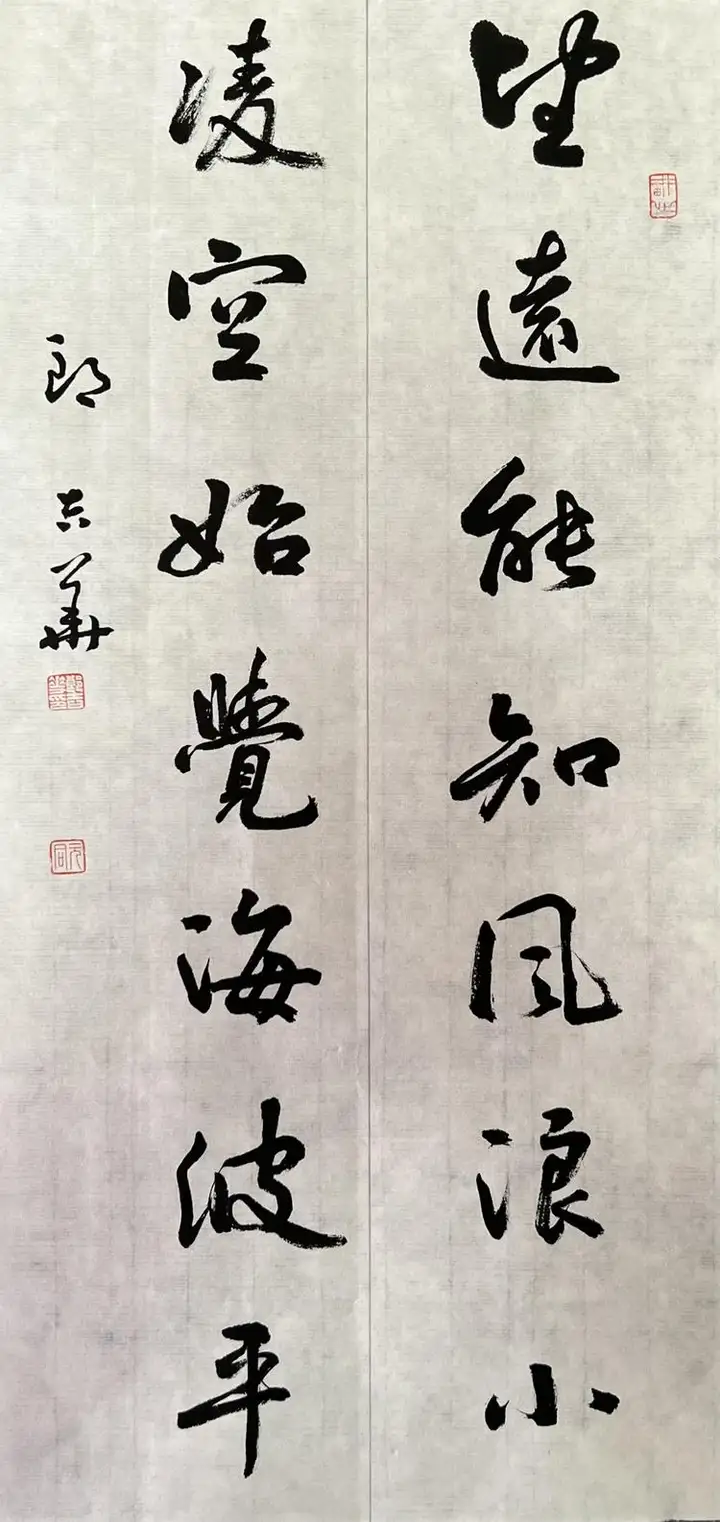 望遠能知風浪小
凌空始覺海波平
郎吉華